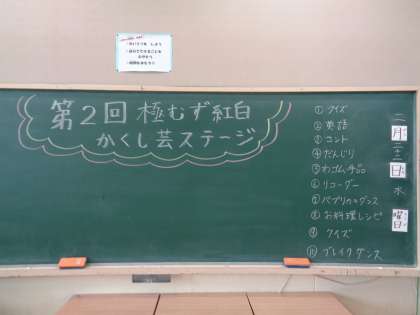 ・あいさつを しよう
第2回 極むず紅白
かくし芸ステージ
① クイズ
② 英語
③ コント
④ だんじり
⑤ わゴム手品
⑥ リコーダー
⑦ パプリカダンス
⑧ お料理レシピ
⑨ クイズ
⑩ ブレイクダンス
二月二十二日 水曜日